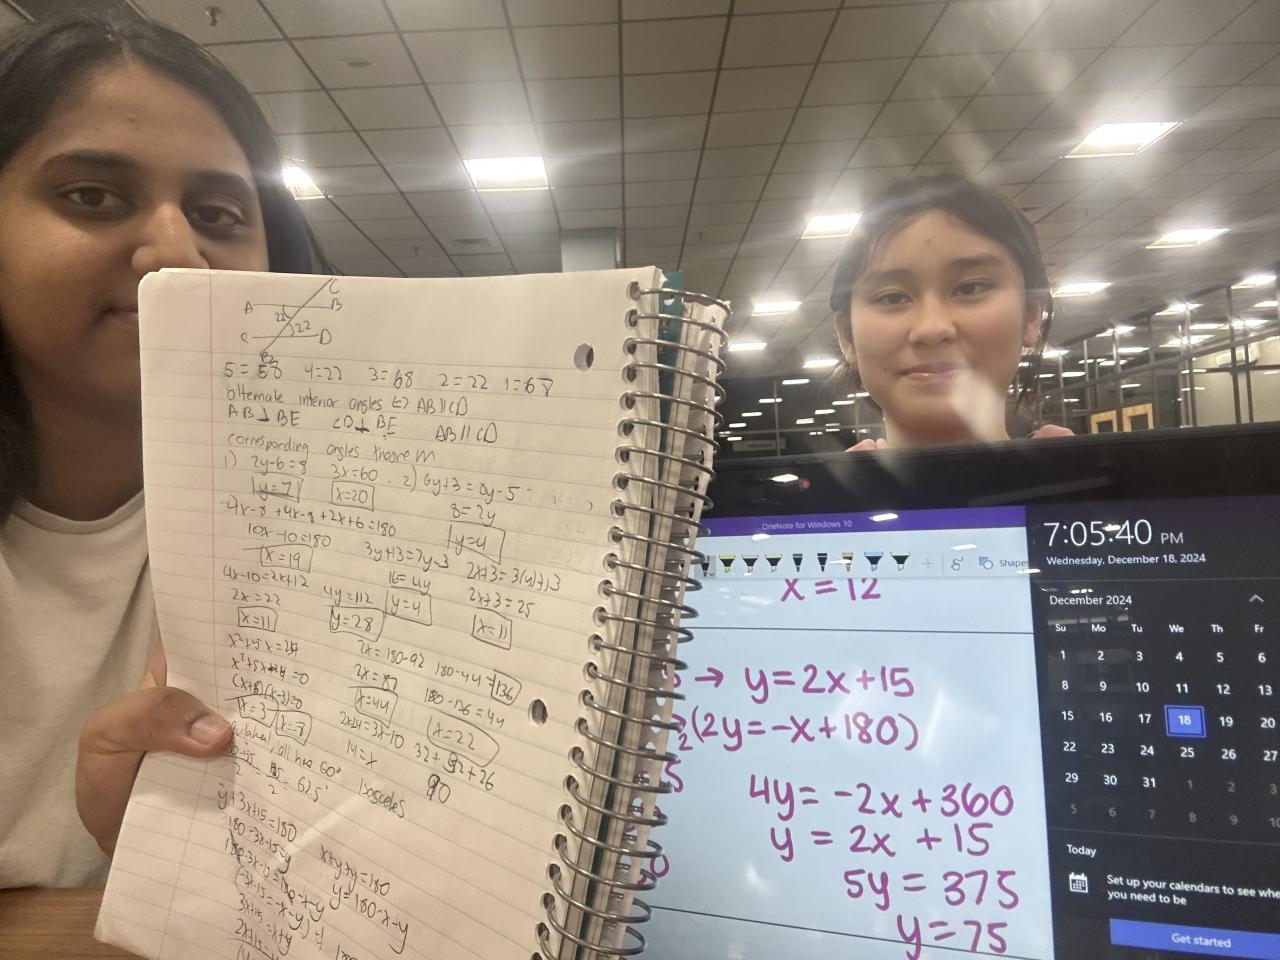 C
A B
22
22
C D
5 = 58 4=22 3=68 2=22 1=68
alternate interior angles AB || CD
AB ⊥ BE CD ⊥ BE AB || CD
corresponding angles theorem
1) 2y-6=8 3x=60 2) 6y+3=8y-5
y=7 x=20 8=2y
-4x-8+4x-8+2x+6=180 y=4
10x-10=180
x=19 3y+13=7y-3 2x+3=3(4)+13
4x-10=2x+12 16=4y 2x+3=25
2x=22 4y=112 y=4 x=11
x=11 y=28
x²+5x=24 2x=180-92 180-44=136
x²+5x-24=0 2x=87 180-136=44
(x+8)(x-3)=0 x=44 x=22
x=3 x=-8 2x+4=3x-10 32+32+26
all have 60° 14=x 90
= 62.5° isosceles
2
y+3x+15=180
180-3x-15=y x+y+y=180
y=180-x-y
3x+15=x+y
OneNote for Windows 10
Shapes
x = 12
→ y=2x+15
2(2y=-x+180)
4y= -2x+360
y = 2x +15
5y = 375
y=75
7:05:40 PM
Wednesday, December 18, 2024
December 2024
Su Mo Tu We Th Fr
1 2 3 4 5 6
8 9 10 11 12 13
15 16 17 18 19 20
22 23 24 25 26 27
29 30 31 1 2 3
5 6 7 8 9 10
Today
Set up your calendars to see whe
you need to be
Get started